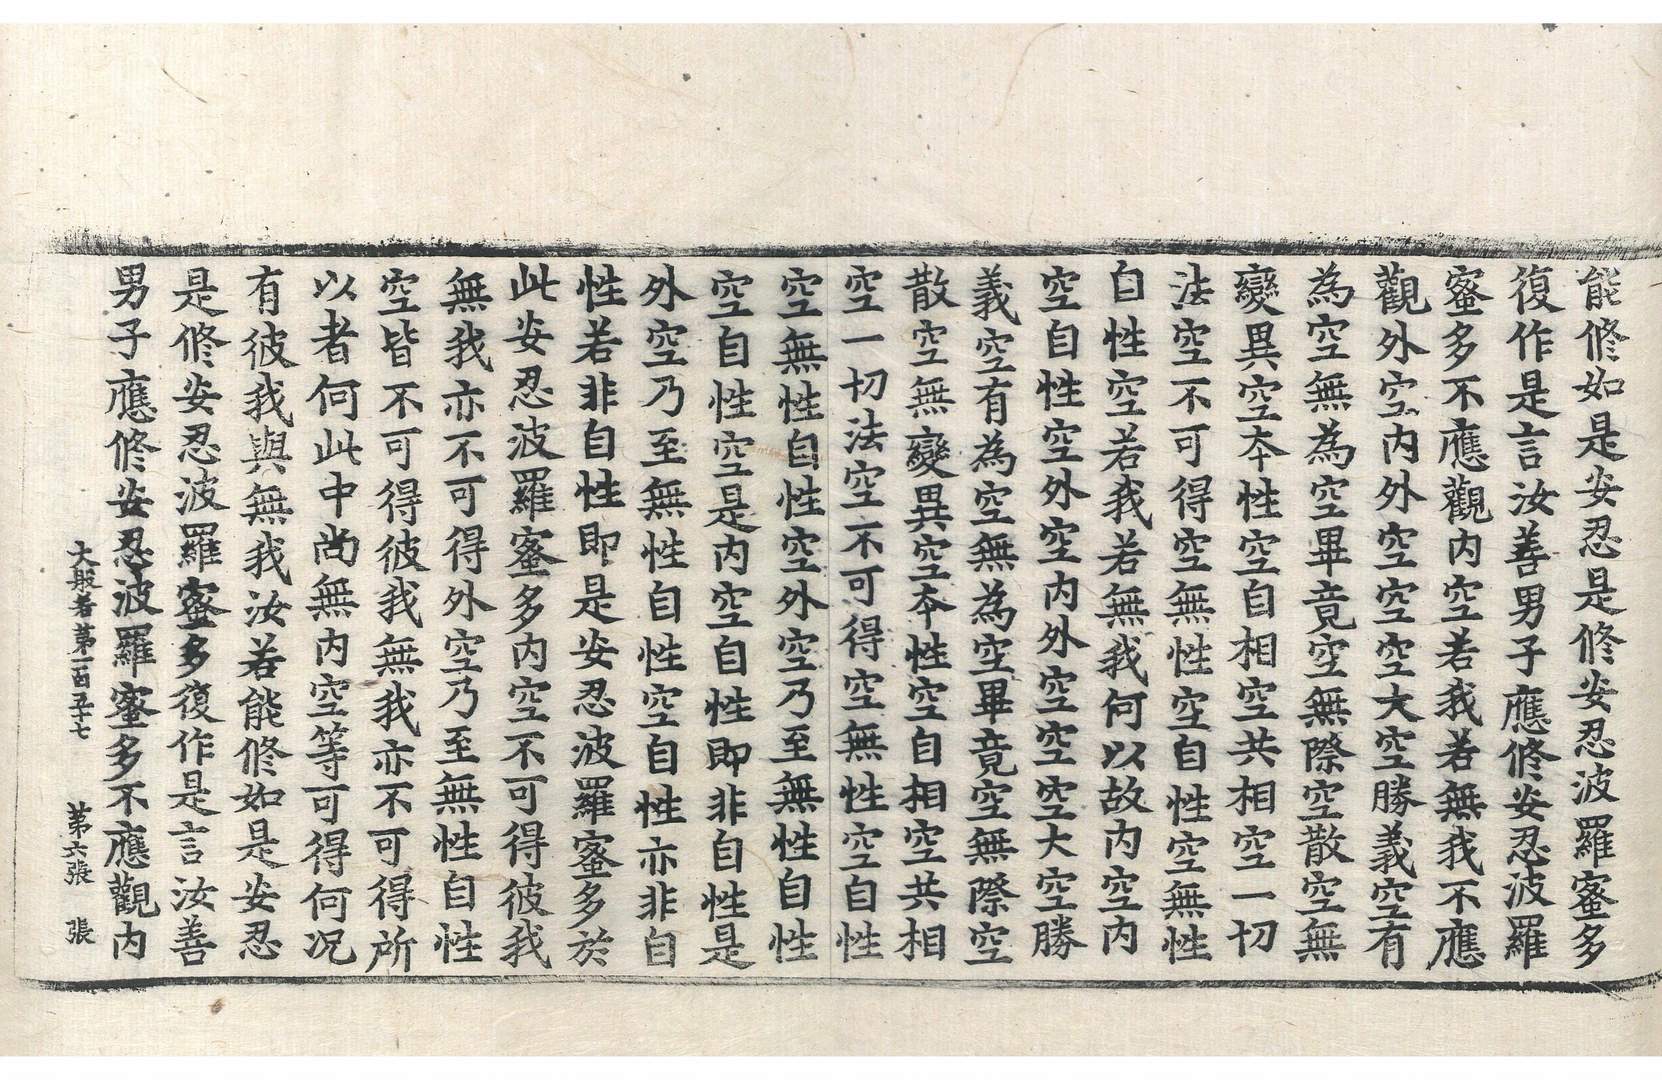 能修如是安忍是修安忍波羅蜜多
復作是言汝善男子應修安忍波羅
蜜多不應觀内空若我若無我不應
觀外空内外空空空大空勝義空有
為空無為空畢竟空無際空散空無
變異空本性空自相空共相空一切
法空不可得空無性空自性空無性
自性空若我若無我何以故内空内
空自性空外空内外空空空大空勝
義空有為空無為空畢竟空無際空
散空無變異空本性空自相空共相
空一切法空不可得空無性空自性
空無性自性空外空乃至無性自性
空自性空是内空自性即非自性是
外空乃至無性自性空自性亦非自
性若非自性即是安忍波羅蜜多於
此安忍波羅蜜多内空不可得彼我
無我亦不可得外空乃至無性自性
空皆不可得彼我無我亦不可得所
以者何此中尚無内空等可得何况
有彼我與無我汝若能修如是安忍
是修安忍波羅蜜多復作是言汝善
男子應修安忍波羅蜜多不應觀内
大般若第一百五十七 第六張 張